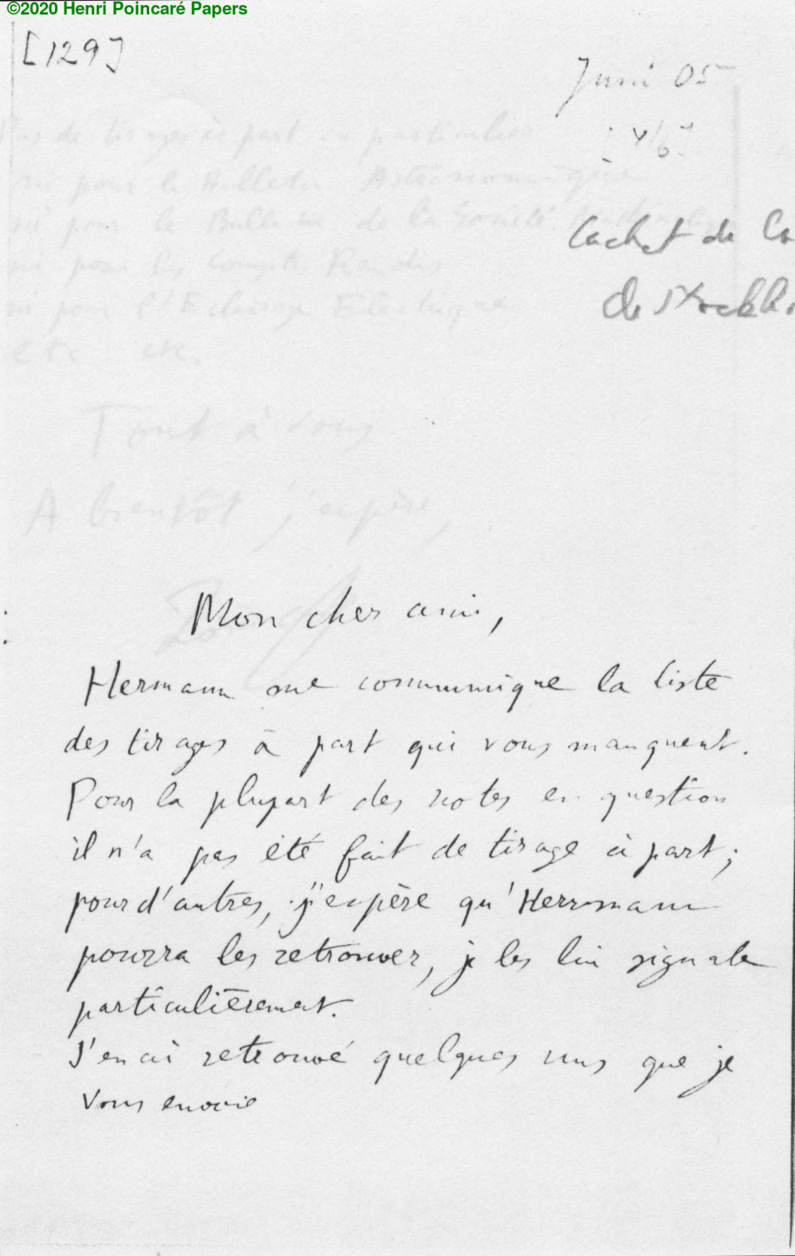 ©2020 Henri Poincaré Papers
[129]
Juni 05
Pas de tirages à part en particulier
ni pour le Bulletin Astronomique
ni pour le Bulletin de la Société
ni pour les Comptes Rendus
ni pour l'Eclairage Electrique
etc etc.
Cachet de
de
Tout à vous
A bientôt j'espère,
Mon cher ami,
Hermann me communique la liste
des tirages à part qui vous manquent.
Pour la plupart des notes en question
il n'a pas été fait de tirage à part ;
pour d'autres, j'espère qu'Hermann
pourra les retrouver, je les lui signale
particulièrement.
J'en ai retrouvé quelques uns que je
vous envoie